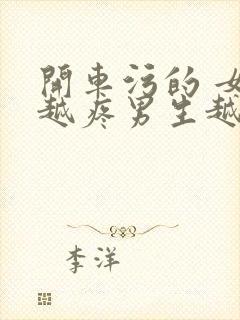 開車污的 女
越疼男生越
李洋